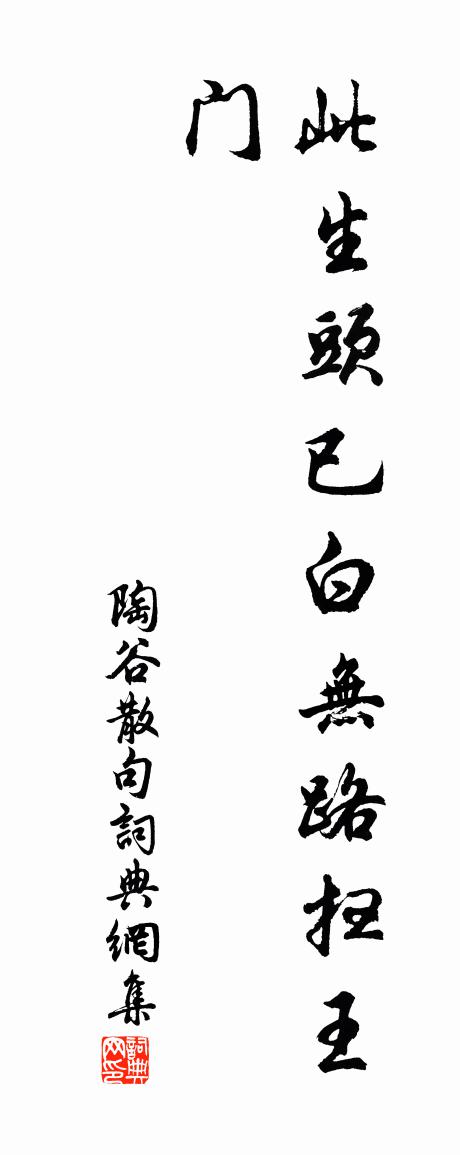 此生頭已白無路拒王
门
陶谷散句詞典網集
詞典网印